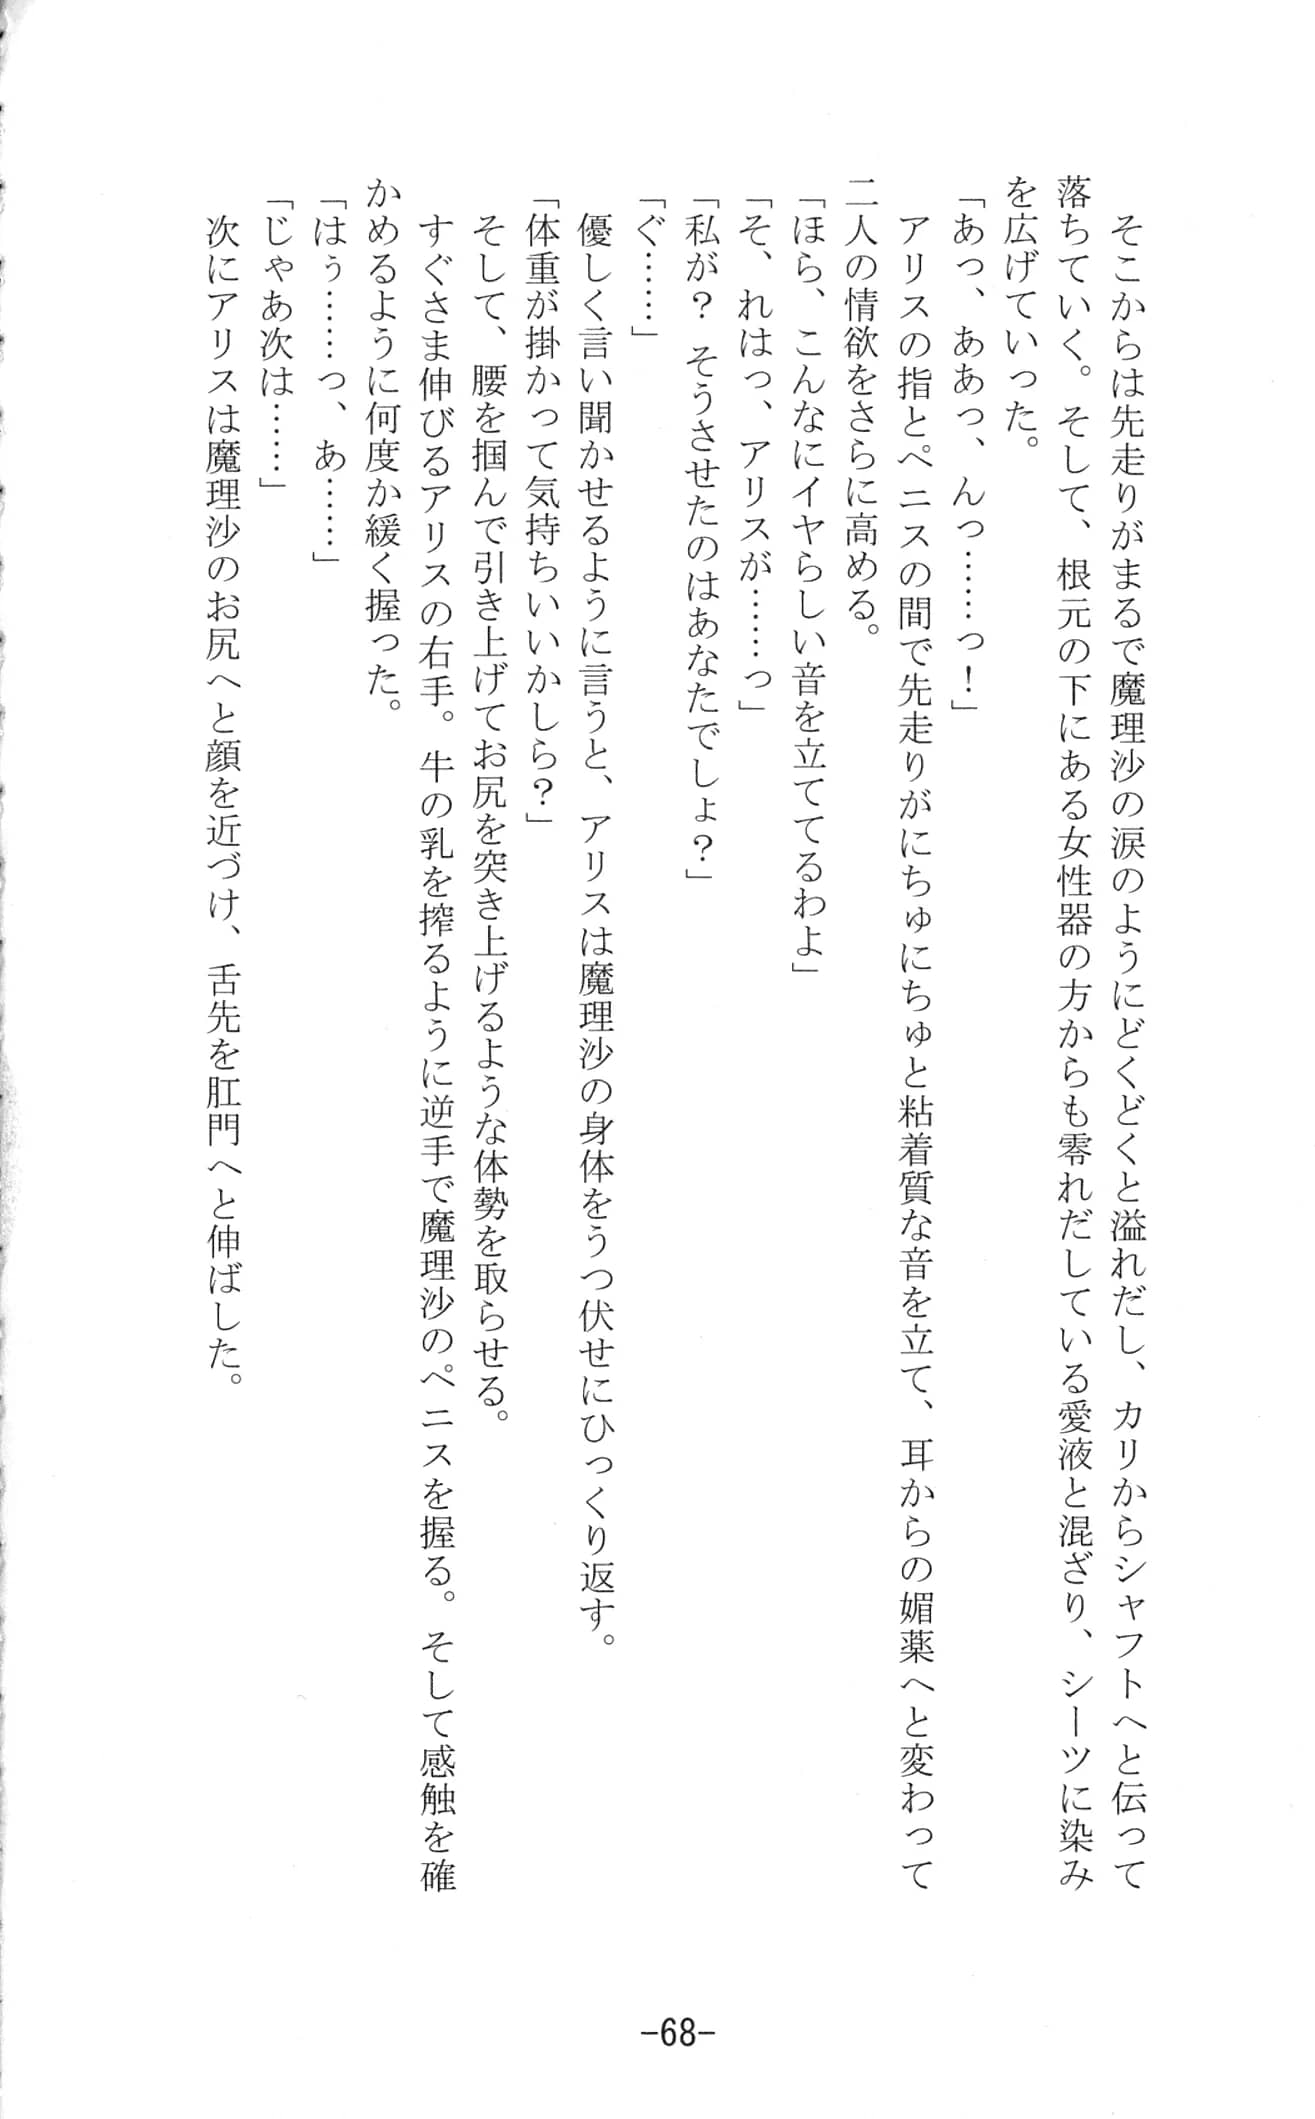 そこからは先走りがまるで魔理沙の涙のようにどくどくと溢れだし、カリからシャフトへと伝って
落ちていく。そして、根元の下にある女性器の方からも零れだしている愛液と混ざり、シーツに染み
を広げていった。
「あっ、ああっ、んっ……っ！」
アリスの指とペニスの間で先走りがにちゅにちゅと粘着質な音を立て、耳からの媚薬へと変わって
二人の情欲をさらに高める。
「ほら、こんなにイヤらしい音を立ててるわよ」
「そ、れはっ、アリスが……っ」
「私が？　そうさせたのはあなたでしょ？」
「ぐ……」
優しく言い聞かせるように言うと、アリスは魔理沙の身体をうつ伏せにひっくり返す。
「体重が掛かって気持ちいいかしら？」
そして、腰を掴んで引き上げてお尻を突き上げるような体勢を取らせる。
すぐさま伸びるアリスの右手。牛の乳を搾るように逆手で魔理沙のペニスを握る。そして感触を確
かめるように何度か緩く握った。
「はぅ……っ、あ……」
「じゃあ次は……」
次にアリスは魔理沙のお尻へと顔を近づけ、舌先を肛門へと伸ばした。
-68-